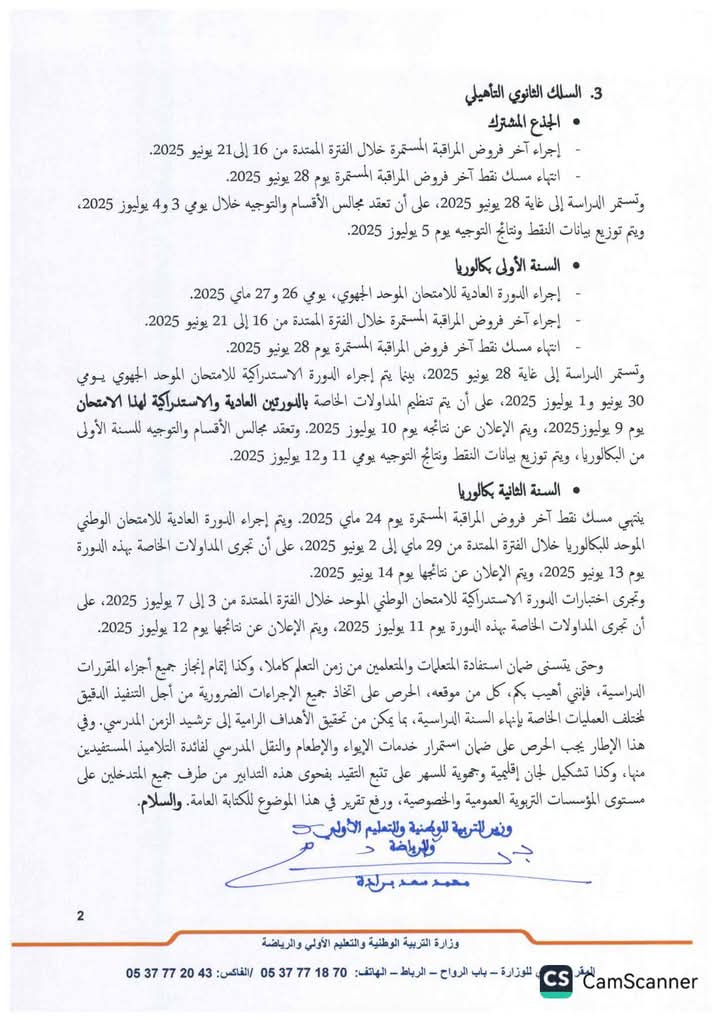 3. السلك الثانوي التأهيلي
• الجذع المشترك
- إجراء آخر فروض المراقبة المستمرة خلال الفترة الممتدة من 16 إلى21 يونيو 2025.
- انتهاء مسك نقط آخر فروض المراقبة المستمرة يوم 28 يونيو 2025.
وتستمر الدراسة إلى غاية 28 يونيو 2025، على أن تعقد مجالس الأقسام والتوجيه خلال يومي 3 و4 يوليوز 2025،
ويتم توزيع بيانات النقط ونتائج التوجيه يوم 5 يوليوز 2025.
• السنة الأولى بكالوريا
- إجراء الدورة العادية للامتحان الموحد الجهوي، يومي 26 و27 ماي 2025.
- إجراء آخر فروض المراقبة المستمرة خلال الفترة الممتدة من 16 إلى 21 يونيو 2025.
- انتهاء مسك نقط آخر فروض المراقبة المستمرة يوم 28 يونيو 2025.
وتستمر الدراسة إلى غاية 28 يونيو 2025، بينما يتم إجراء الدورة الاستدراكية للامتحان الموحد الجهوي يـومي
30 يونيو و1 يوليوز 2025، على أن يتم تنظيم المداولات الخاصة بالدورتين العادية والاستدراكية لهذا الامتحان
يوم 9 يوليوز2025، ويتم الإعلان عن نتائجه يوم 10 يوليوز 2025. وتعقد مجالس الأقسام والتوجيه للسنة الأولى
من البكالوريا، ويتم توزيع بيانات النقط ونتائج التوجيه يومي 11 و12 يوليوز 2025.
• السنة الثانية بكالوريا
ينتهي مسك نقط آخر فروض المراقبة المستمرة يوم 24 ماي 2025. ويتم إجراء الدورة العادية للامتحان الوطني
الموحد للبكالوريا خلال الفترة الممتدة من 29 ماي إلى 2 يونيو 2025، على أن تجرى المداولات الخاصة بهذه الدورة
يوم 13 يونيو 2025، ويتم الإعلان عن نتائجها يوم 14 يونيو 2025.
وتجرى اختبارات الدورة الاستدراكية للامتحان الوطني الموحد خلال الفترة الممتدة من 3 إلى 7 يوليوز 2025، على
أن تجرى المداولات الخاصة بهذه الدورة يوم 11 يوليوز 2025، ويتم الإعلان عن نتائجها يوم 12 يوليوز 2025.
وحتى يتسنى ضمان استفادة المتعلمات والمتعلمين من زمن التعلم كاملا، وكذا إتمام إنجاز جميع أجزاء المقررات
الدراسية، فإنني أهيب بكم، كل من موقعه، الحرص على اتخاذ جميع الإجراءات الضرورية من أجل التنفيذ الدقيق
لمختلف العمليات الخاصة بإنهاء السنة الدراسية، بما يمكن من تحقيق الأهداف الرامية إلى ترشيد الزمن المدرسي. وفي
هذا الإطار يجب الحرص على ضمان استمرار خدمات الإيواء والإطعام والنقل المدرسي لفائدة التلاميذ المستفيدين
منها، وكذا تشكيل لجان إقليمية وجهوية للسهر على تتبع التقيد بفحوى هذه التدابير من طرف جميع المتدخلين على
مستوى المؤسسات التربوية العمومية والخصوصية، ورفع تقرير في هذا الموضوع للكتابة العامة. والسلام.
وزير التربية الوطنية والتعليم الأولي
والرياضة
محمد سعد برادة
2
وزارة التربية الوطنية والتعليم الأولي والرياضة
للوزارة – باب الرواح – الرباط – الهاتف: 05 37 77 18 70 /الفاكس: 05 37 77 20 43
CS CamScanner